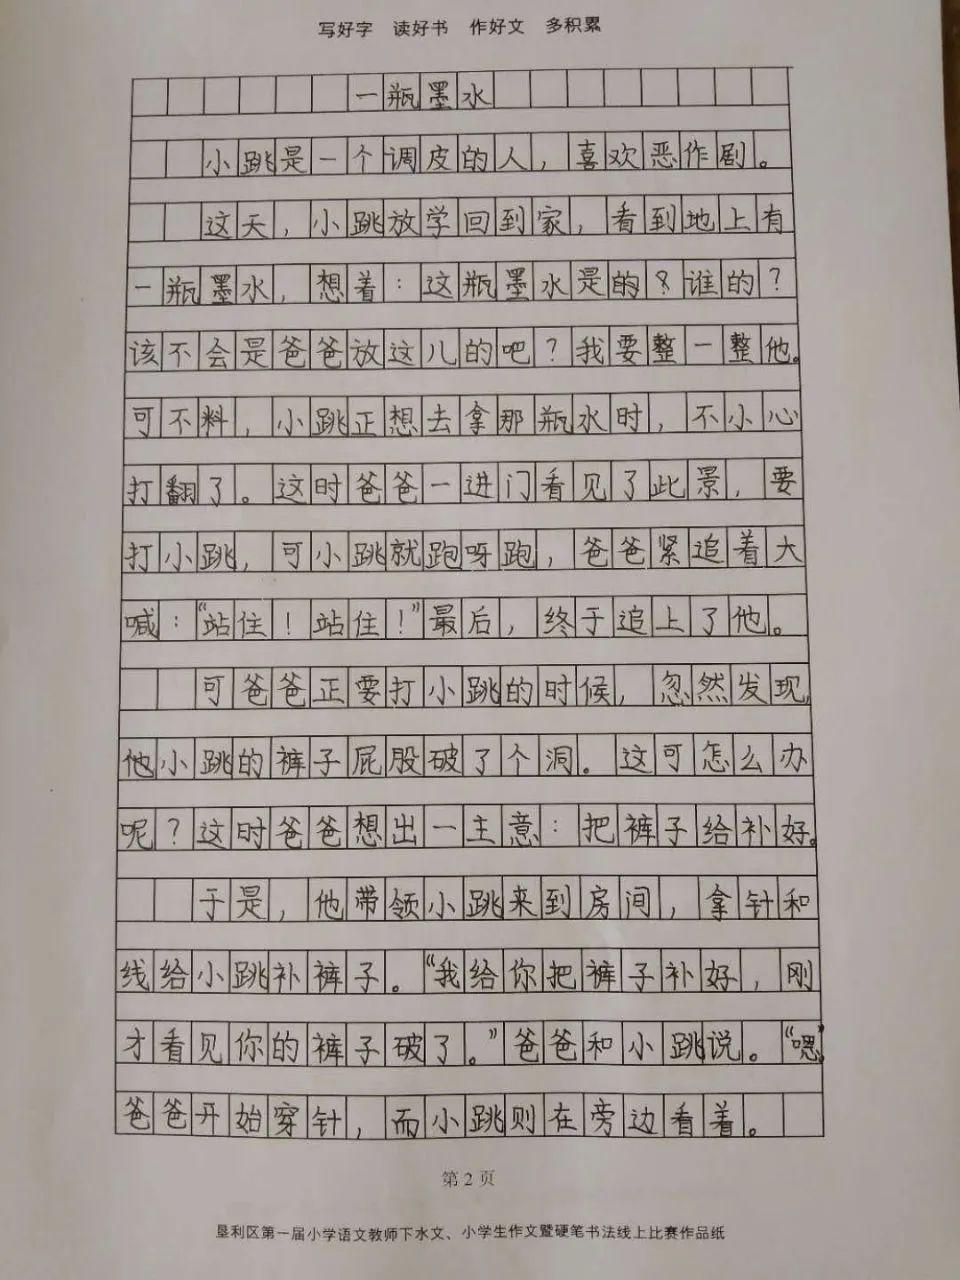 写好字 读好书 作好文 多积累
一瓶墨水
小跳是一个调皮的人，喜欢恶作剧。
这天，小跳放学回到家，看到地上有
一瓶墨水，想着：这瓶墨水是的谁的？
该不会是爸爸放这儿的吧？我要整一整他。
可不料，小跳正想去拿那瓶水时，不小心
打翻了。这时爸爸一进门看见了此景，要
打小跳，可小跳就跑呀跑，爸爸紧追着大
喊：“站住！站住！”最后，终于追上了他。
可爸爸正要打小跳的时候，忽然发现，
他小跳的裤子屁股破了个洞。这可怎么办
呢？这时爸爸想出一主意：把裤子给补好。
于是，他带领小跳来到房间，拿针和
线给小跳补裤子。“我给你把裤子补好，刚
才看见你的裤子破了。”爸爸和小跳说。“嗯”
爸爸开始穿针，而小跳则在旁边看着。
第2页
垦利区第一届小学语文教师下水文、小学生作文暨硬笔书法线上比赛作品纸